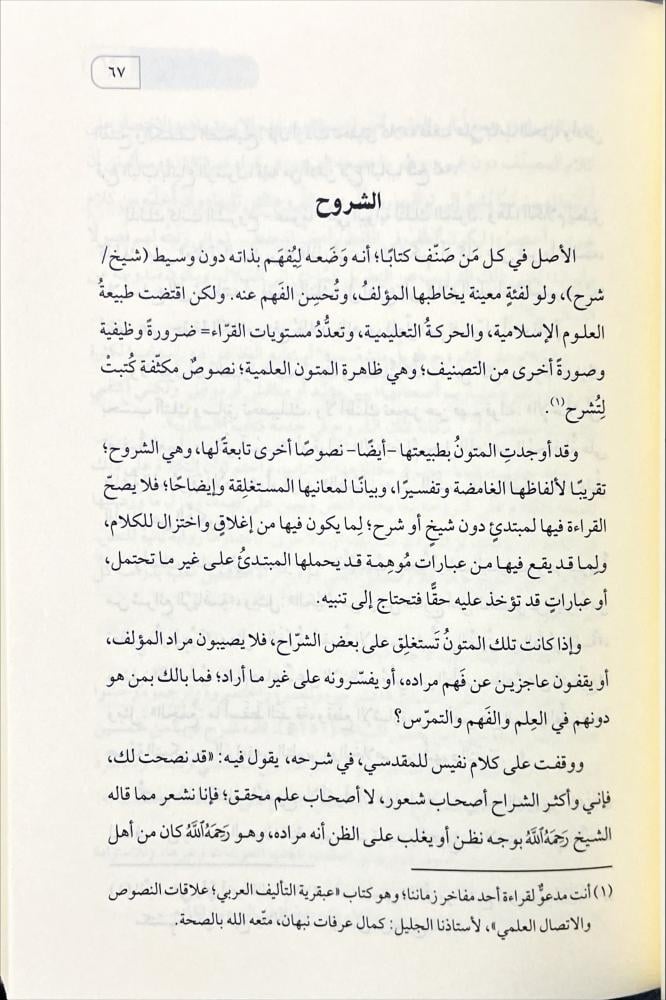 ٦٧
الشروح
الأصل في كل مَن صَنّف كتابًا؛ أنه وَضَعه لِيُفهَم بذاته دون وسيط (شيخ/
شرح)، ولو لفئةٍ معينة يخاطبها المؤلفُ، وتُحسِن الفَهم عنه. ولكن اقتضت طبيعةُ
العلوم الإسلامية، والحركةُ التعليمية، وتعدُّدُ مستويات القرّاء= ضرورةً وظيفية
وصورةً أخرى من التصنيف؛ وهي ظاهرة المتون العلمية؛ نصوصٌ مكثّفة كُتبتْ
لِتُشرح(١).
وقد أوجدتِ المتونُ بطبيعتها -أيضًا- نصوصًا أخرى تابعةً لها، وهي الشروح؛
تقريبًا لألفاظها الغامضة وتفسيرًا، وبيانًا لمعانيها المستغلِقة وإيضاحًا؛ فلا يصحّ
القراءة فيها لمبتدئٍ دون شيخٍ أو شرح؛ لِما يكون فيها من إغلاقٍ واختزال للكلام،
ولِما قد يقع فيها من عبارات مُوهِمة قد يحملها المبتدئُ على غير ما تحتمل،
أو عباراتٍ قد تؤخذ عليه حقًّا فتحتاج إلى تنبيه.
وإذا كانت تلك المتونُ تَستغلِق على بعض الشرّاح، فلا يصيبون مراد المؤلف،
أو يقفون عاجزين عن فَهم مراده، أو يفسّرونه على غير ما أراد؛ فما بالك بمن هو
دونهم في العِلم والفَهم والتمرّس؟
ووقفت على كلام نفيس للمقدسي، في شرحه، يقول فيه: «قد نصحت لك،
فإني وأكثر الشراح أصحاب شعور، لا أصحاب علم محقق؛ فإنا نشعر مما قاله
الشيخ رَحِمَهُ ٱللَّهُ بوجه نظن أو يغلب على الظن أنه مراده، وهو رَحِمَهُ ٱللَّهُ كان من أهل
(١) أنت مدعوٌّ لقراءة أحد مفاخر زماننا؛ وهو كتاب «عبقرية التأليف العربي؛ علاقات النصوص
والاتصال العلمي»، لأستاذنا الجليل: كمال عرفات نبهان، متّعه الله بالصحة.